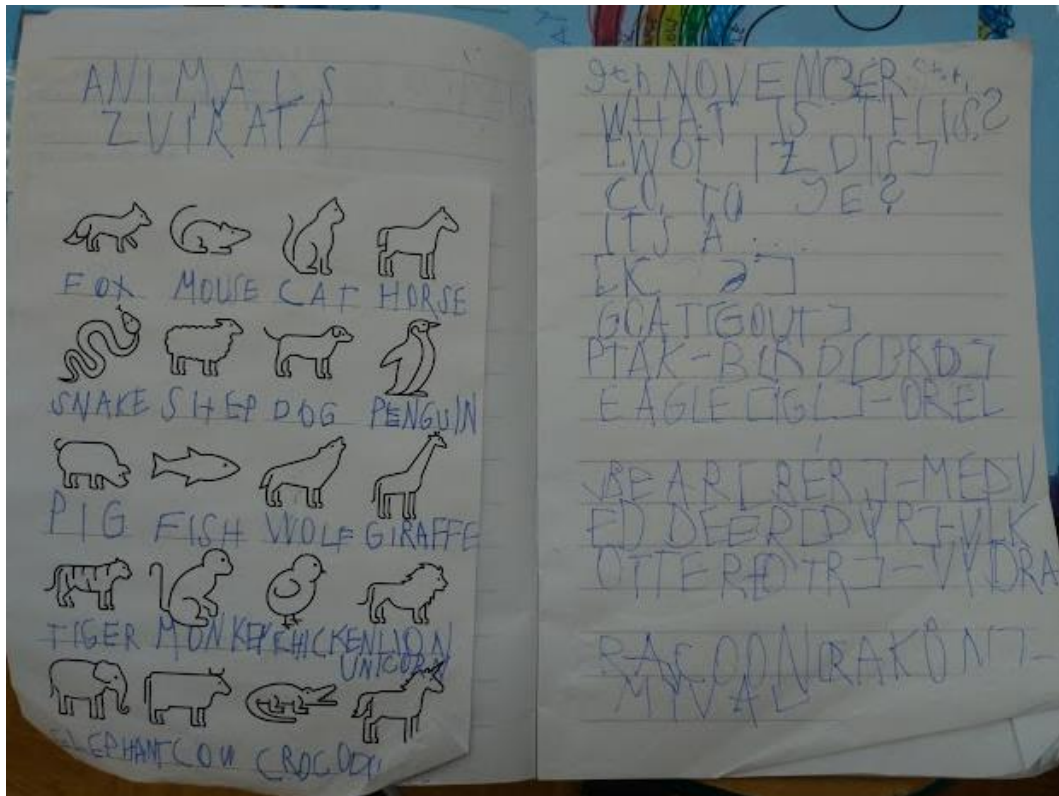 ANIMALS
ZVIŘATA
FOX MOUSE CAT HORSE
SNAKE SHEP DOG PENGUIN
PIG FISH WOLF GIRAFFE
TIGER MONKEY CHICKEN LION
UNICORN
ELEPHANT COW CROCODI
9th NOVEMBER
WHAT IS THIS?
[WOT IZ DIS]
CO TO JE?
ITS A ...
[K ə]
GOAT [GOUT]
PTAK-BIRD [BRD]
EAGLE [IGL]-OREL
BEAR [BER]-MEDV
ED DEER [DYR]-VLK
OTTER [OTR]-VYDRA
RACOON [RAKÔN]-
MÝVAL